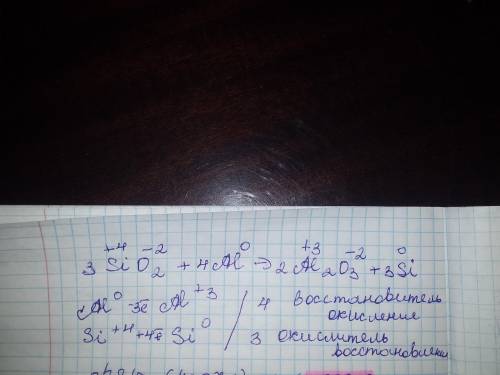 +4 -2 0 +3 -2 0
3 SiO₂ + 4Al → 2Al₂O₃ + 3Si
Al⁰ -3e Al⁺³ / 4 восстановитель
окисление
Si⁺⁴ +4e Si⁰ / 3 окислитель
восстановлен